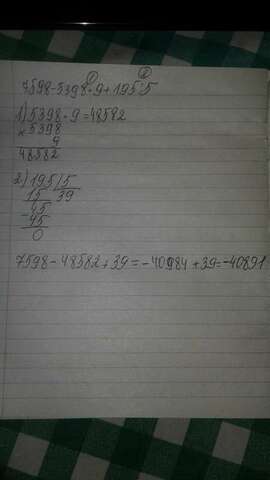 ① ②
7598-5398·9+195:5
1) 5398·9=48582
×5398
9
48582
2) 195|5
15 39
45
-45
0
7598-48582+39=-40984+39=-40891